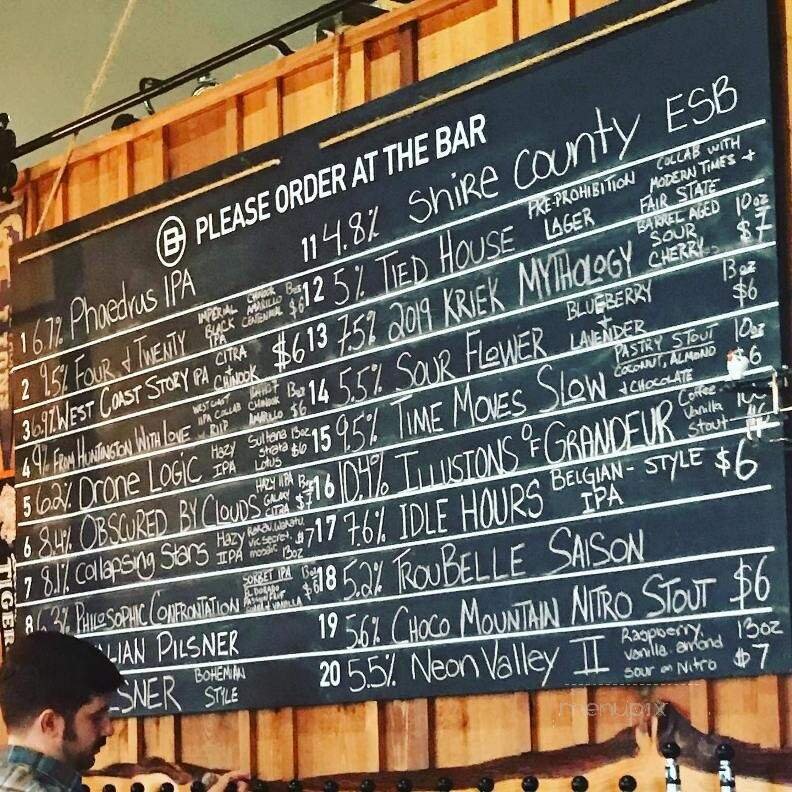 PLEASE ORDER AT THE BAR
1 6.7% Phaedrus IPA
2 9.5% FOUR & TWENTY IMPERIAL BLACK IPA CHINOOK AMARILLO CENTENNIAL 13oz $6
3 6.9% WEST COAST STORY IPA CITRA + CHINOOK $6
4 9% FROM HUNTINGTON WITH LOVE WEST COAST IIPA COLLAB W/ RIIP CHINOOK AMARILLO 13oz $6
5 6.2% Drone LOGIC HAZY IPA Sultana Strata Lotus 13oz $6
6 8.4% OBSCURED BY CLOUDS HAZY IIPA GALAXY CITRA 13oz $7
7 8.1% Collapsing Stars Hazy IIPA Rakau, Wakatu, Vic Secret, mosaic 13oz $7
8 6.3% PHILOSOPHIC CONFRONTATION SORBET IPA EL DORADO PASSION FRUIT VANILLA 13oz $6
LIAN PILSNER
LSNER BOHEMIAN STYLE
11 4.8% Shire County ESB
12 5% TIED HOUSE PRE-PROHIBITION LAGER COLLAB WITH MODERN TIMES + FAIR STATE
13 7.5% 2019 KRIEK MYTHOLOGY BARREL AGED SOUR CHERRY 10oz $7
14 5.5% SOUR FLOWER BLUEBERRY + LAVENDER 13oz $6
15 9.5% TIME MOVES SLOW PASTRY STOUT COCONUT, ALMOND + CHOCOLATE 10oz $6
16 10.4% ILLUSIONS OF GRANDEUR Coffee Vanilla Stout
17 7.6% IDLE HOURS BELGIAN-STYLE IPA $6
18 5.2% TROUBELLE SAISON
19 5.6% CHOCO MOUNTAIN NITRO STOUT $6
20 5.5% Neon Valley II Raspberry, vanilla, almond sour on Nitro 13oz $7
TIGER
menupix